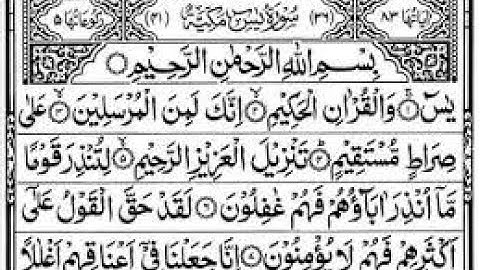 اٰیَاتُهَا ۸۳ (۳۶) سُوْرَةُ یٰسٓ مَكِّیَّةٌ (۴۱) رُكُوْعَاتُهَا ۵
بِسْمِ اللهِ الرَّحْمٰنِ الرَّحِیْمِ
یٰسٓ ۚ‏ ۱ وَالْقُرْاٰنِ الْحَكِیْمِ ۙ‏ ۲ اِنَّكَ لَمِنَ الْمُرْسَلِیْنَ ۙ‏ ۳ عَلٰی
صِرَاطٍ مُّسْتَقِیْمٍ ؕ‏ ۴ تَنْزِیْلَ الْعَزِیْزِ الرَّحِیْمِ ۙ‏ ۵ لِتُنْذِرَ قَوْمًا
مَّاۤ اُنْذِرَ اٰبَآؤُهُمْ فَهُمْ غٰفِلُوْنَ ۶ لَقَدْ حَقَّ الْقَوْلُ عَلٰۤی
اَكْثَرِهِمْ فَهُمْ لَا یُؤْمِنُوْنَ ۷ اِنَّا جَعَلْنَا فِیْۤ اَعْنَاقِهِمْ اَغْلٰلًا